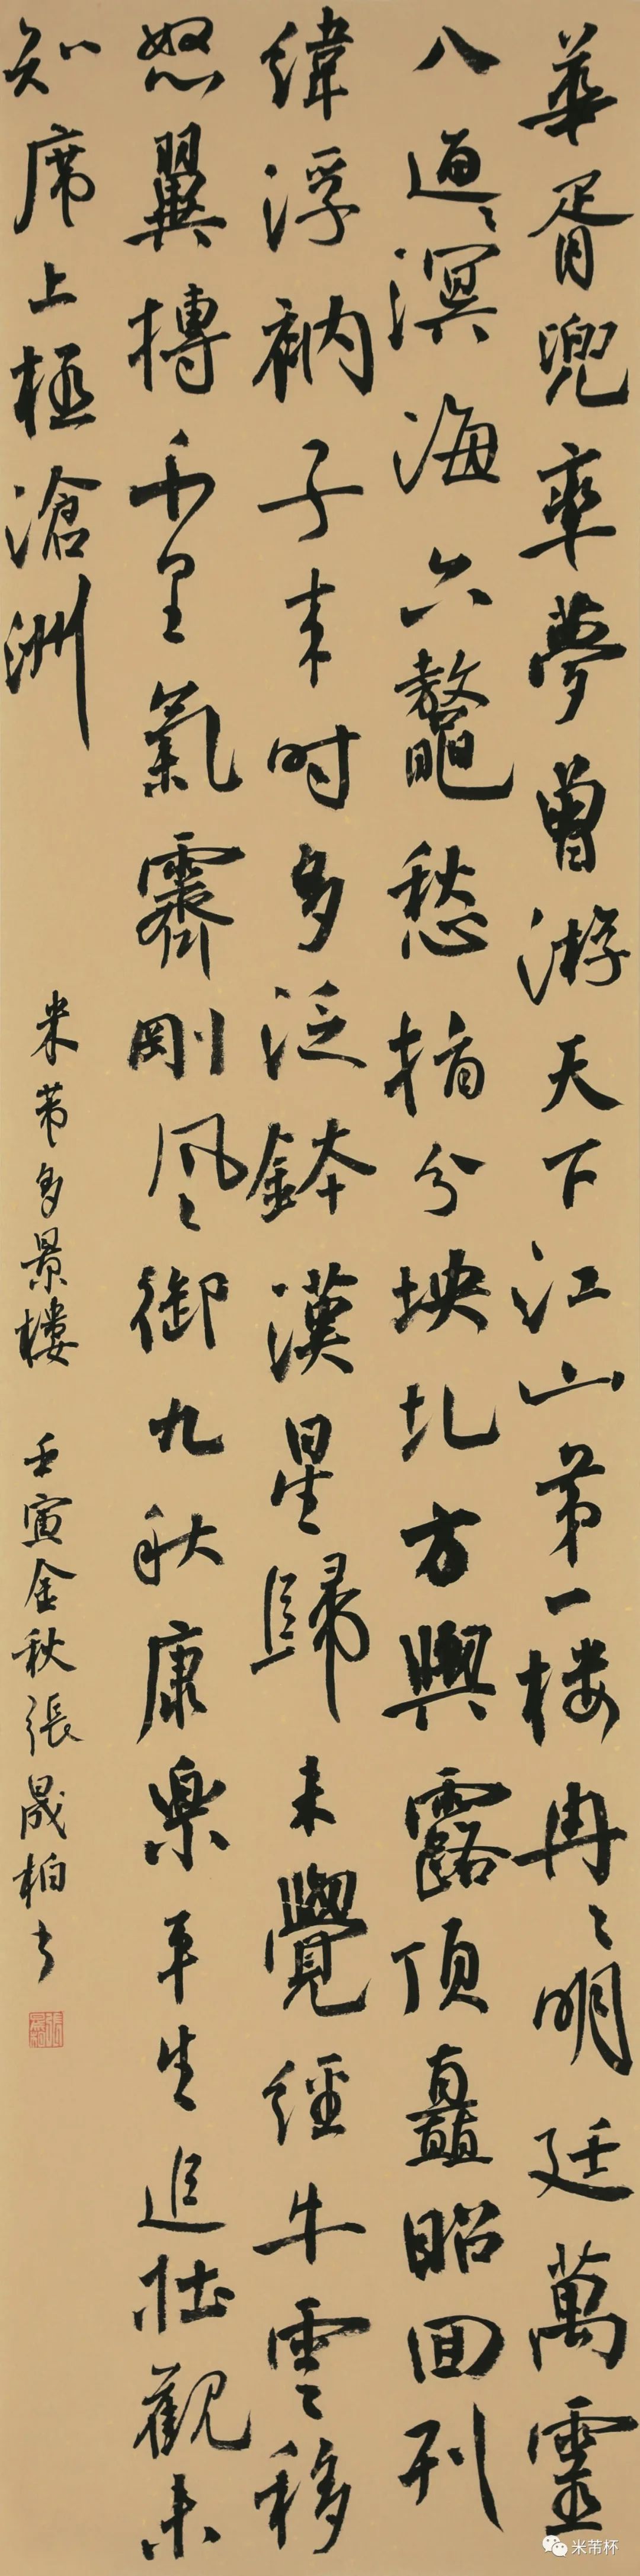 華胥兜率夢曾游天下江山第一楼冉〻明廷萬靈
八通〻溟海六鼇愁指分坱圠方輿露頂矗昭回列
緯浮衲子来时多泛鉢漢星歸未覺經牛雲〻移
怒翼摶千里氣霽剛风〻御九秋康樂平生追壮觀未
知席上極滄洲
米芾多景樓 壬寅金秋張晟柏书
米芾杯